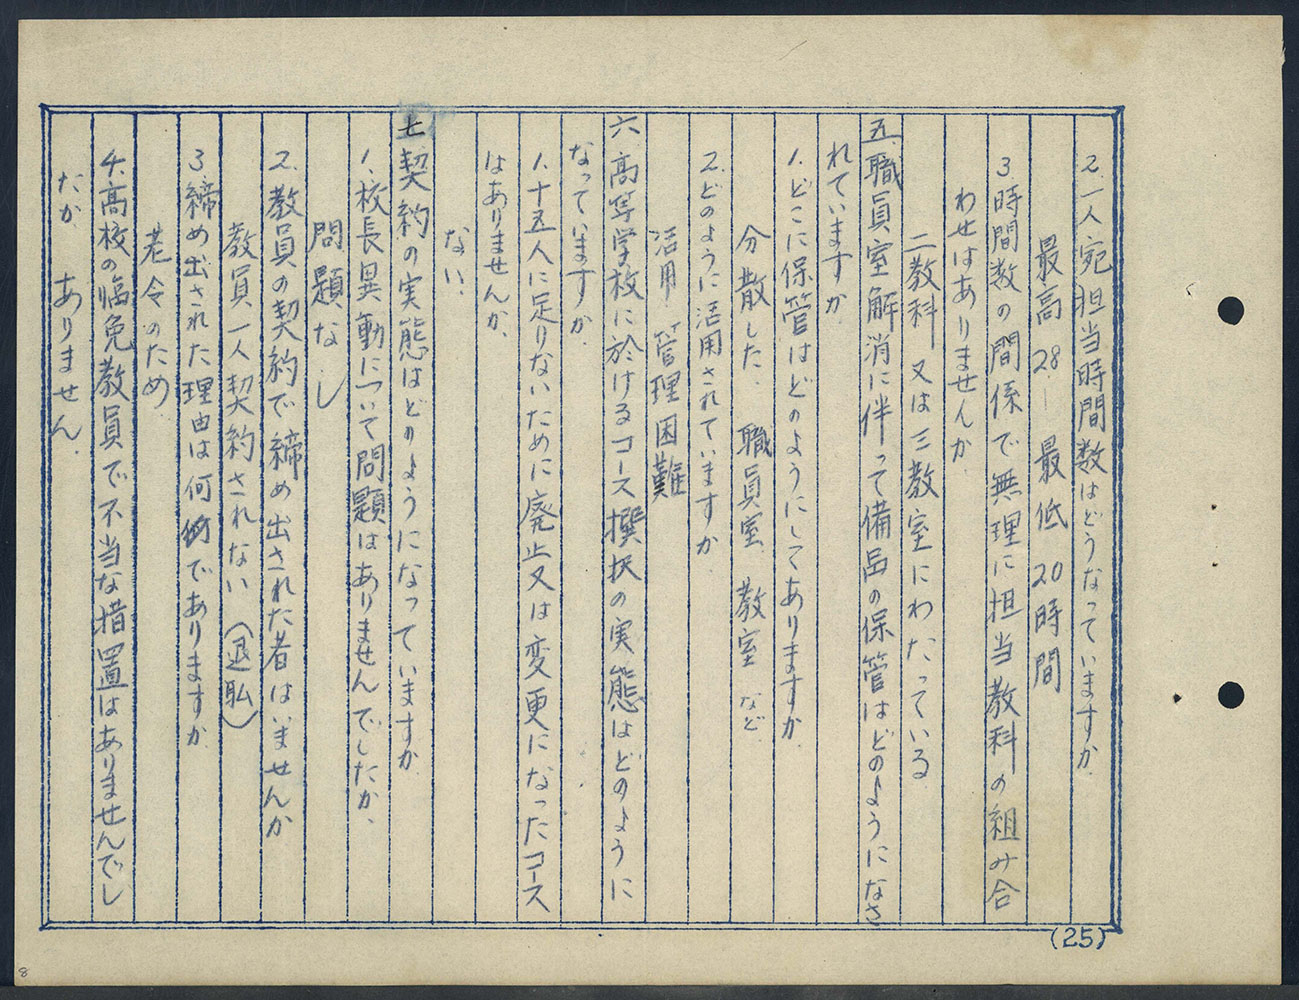 2.一人宛担当時間数はどうなっていますか.
最高28－最低20時間
3時間数の間係で無理に担当教科の組み合
わせはありませんか.
二教科 又は三教室にわたっている
五.職員室解消に伴って備品の保管はどのようになさ
れていますか
1.どこに保管はどのようにしてありますか.
分散した. 職員室 教室 など.
2.どのように活用されていますか.
活用 管理困難
六 高等学校に於けるコース撰択の実態はどのように
なっていますか.
1.十五人に足りないために廃止又は変更になったコース
はありませんか.
ない.
七 契約の実態はどのようになっていますか.
1.校長異動について問題はありませんでしたか.
問題なし
2.教員の契約で締め出された者はいませんか
教員一人契約されない(退職)
3.締め出された理由は何でありますか
老令のため.
4.高校の臨免教員で不当な措置はありませんでし
たか ありません.
(25)
8